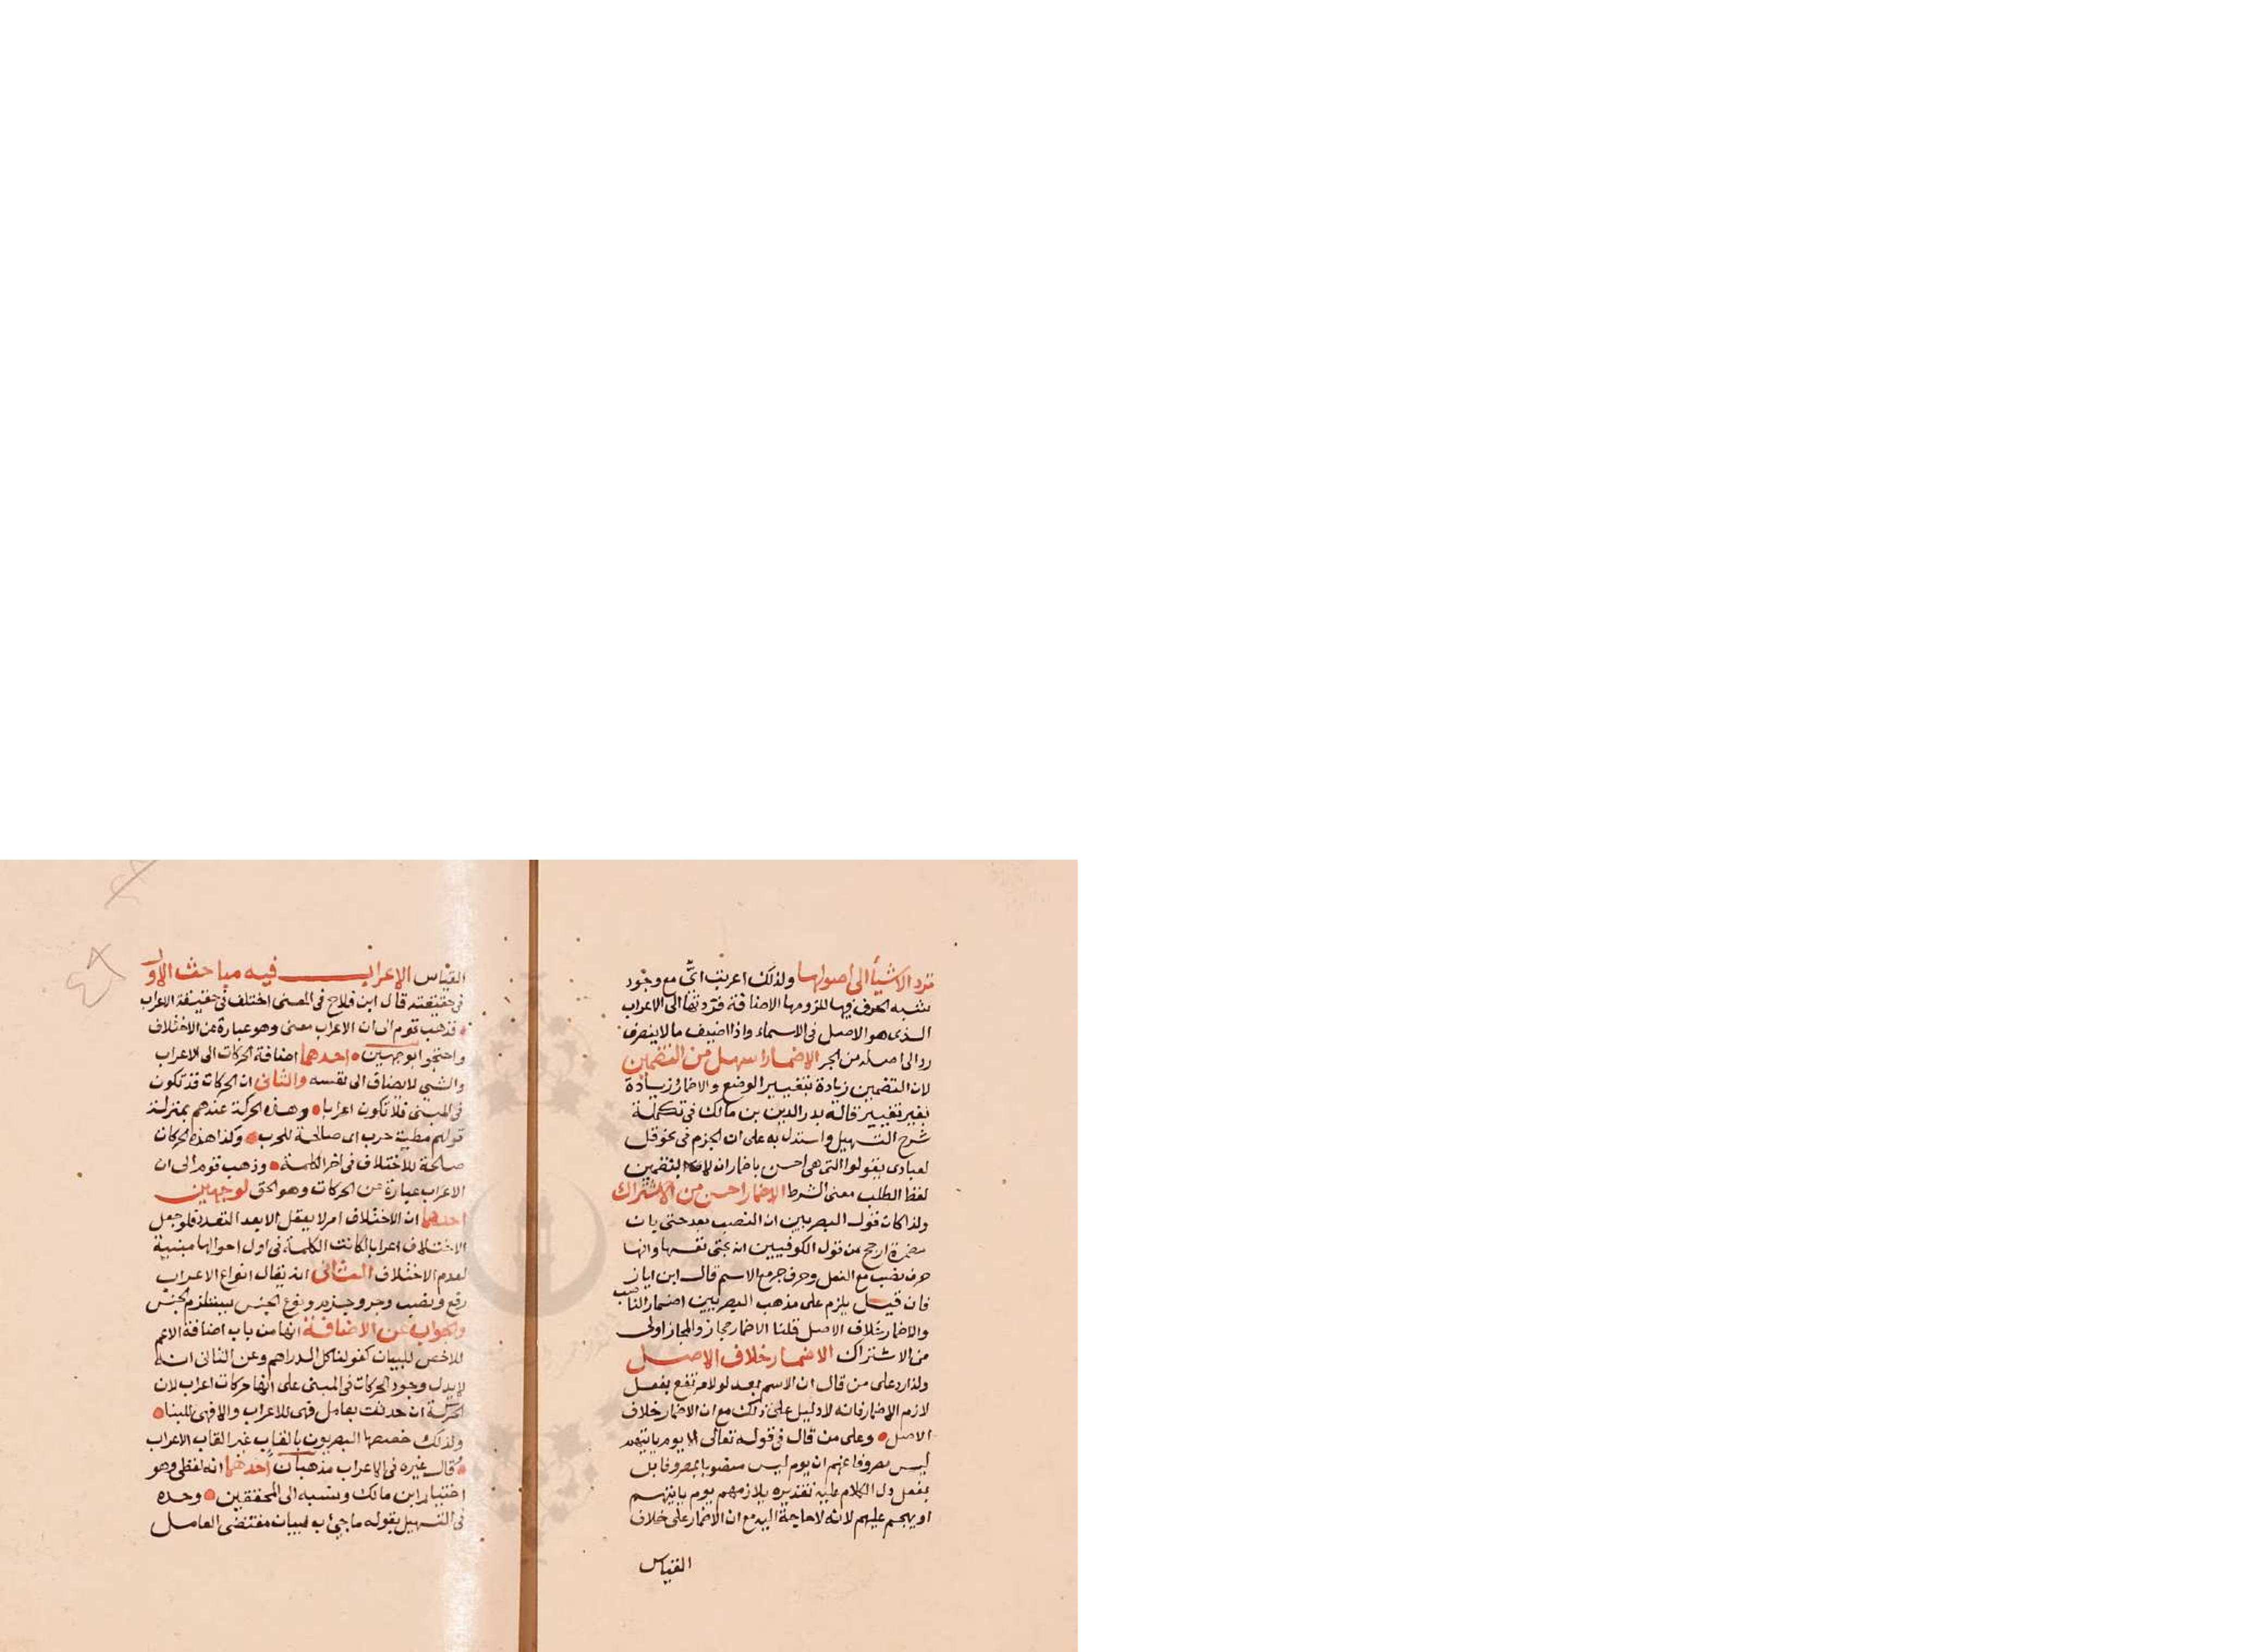 ترد الاشيأ الى اصولها ولذلك اعربت اىّ مع وجود
شبه الحرف فيها للزومها الاضافة فردتها الى الاعراب
الذى هو الاصل فى الاسماء واذا اضيف مالا ينصرف
رد الى اصله من الجر الاضمار اسهل من التضمين
لان التضمين زيادة بتغيير الوضع والاضمار زيادة
بغير تغيير قاله بدر الدين بن مالك فى تكملة
شرح التسهيل واستدل به على ان الجزم فى نحو قل
لعبادى يقولوا التى هى احسن باضمار ان لا بتضمين
لفظ الطلب معنى الشرط الاضمار احسن من الاشتراك
ولذا كان قول البصريين ان النصب بعد حتى بان
مضمرة ارجح من قول الكوفيين انه بحتى نفسها وانها
حرف نصب مع الفعل وحرف جر مع الاسم قال ابن اياز
فان قيل يلزم على مذهب البصريين اضمار الناصب
والاضمار خلاف الاصل قلنا الاضمار مجاز والمجاز اولى
من الاشتراك الاضمار خلاف الاصل
ولذا رد على من قال ان الاسم بعد لولا مرتفع بفعل
لازم الاضمار فانه لا دليل على ذلك مع ان الاضمار خلاف
الاصل وعلى من قال فى قوله تعالى الا يوم ياتيهم
ليس مصروفا عنهم ان يوم ليس منصوبا بمصروفا بل
بفعل دل الكلام عليه تقديره يلازمهم يوم ياتيهم
او يهجم عليهم لانه لا حاجة اليه مع ان الاضمار على خلاف
القياس
القياس الاعراب فيه مباحث الاول
فى حقيقته قال ابن فلاح فى المغنى اختلف فى حقيقة الاعراب
فذهب قوم الى ان الاعراب معنى وهو عبارة عن الاختلاف
واحتجوا بوجهين احدهما اضافة الحركات الى الاعراب
والشى لا يضاف الى نفسه والثانى ان الحركات قد تكون
فى المبنى فلا تكون اعرابا وهذه الحركة عندهم بمنزلة
قولهم مطية حرب اى صالحة للحرب وكذا هذه الحركات
صالحة للاختلاف فى اخر الكلمة وذهب قوم الى ان
الاعراب عبارة عن الحركات وهو الحق لوجهين
احدهما ان الاختلاف امر لا يعقل الا بعد التعدد فلو جعل
الاختلاف اعرابا لكانت الكلمة فى اول احوالها مبنية
لعدم الاختلاف الثانى انه يقال انواع الاعراب
رفع ونصب وجر وجزم ونوع الجنس يستلزم الجنس
والجواب عن الاضافة انها من باب اضافة الاعم
للاخص للبيان كقولنا كل الدراهم وعن الثانى انه
لا يدل وجود الحركات فى المبنى على انها حركات اعراب لان
الحركة ان حدثت بعامل فهى للاعراب والا فهى للبنا
ولذلك خصصها البصريون بالقاب غير القاب الاعراب
وقال غيره فى الاعراب مذهبان احدهما انه لفظى وهو
اختيار ابن مالك ونسبه الى المحققين وحده
فى التسهيل بقوله ما جىٔ به لبيان مقتضى العامل